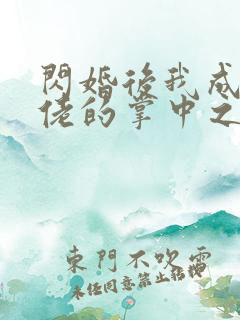 閃婚後我成
佬的掌中之
東門不吹雪
未任同意禁止轉載